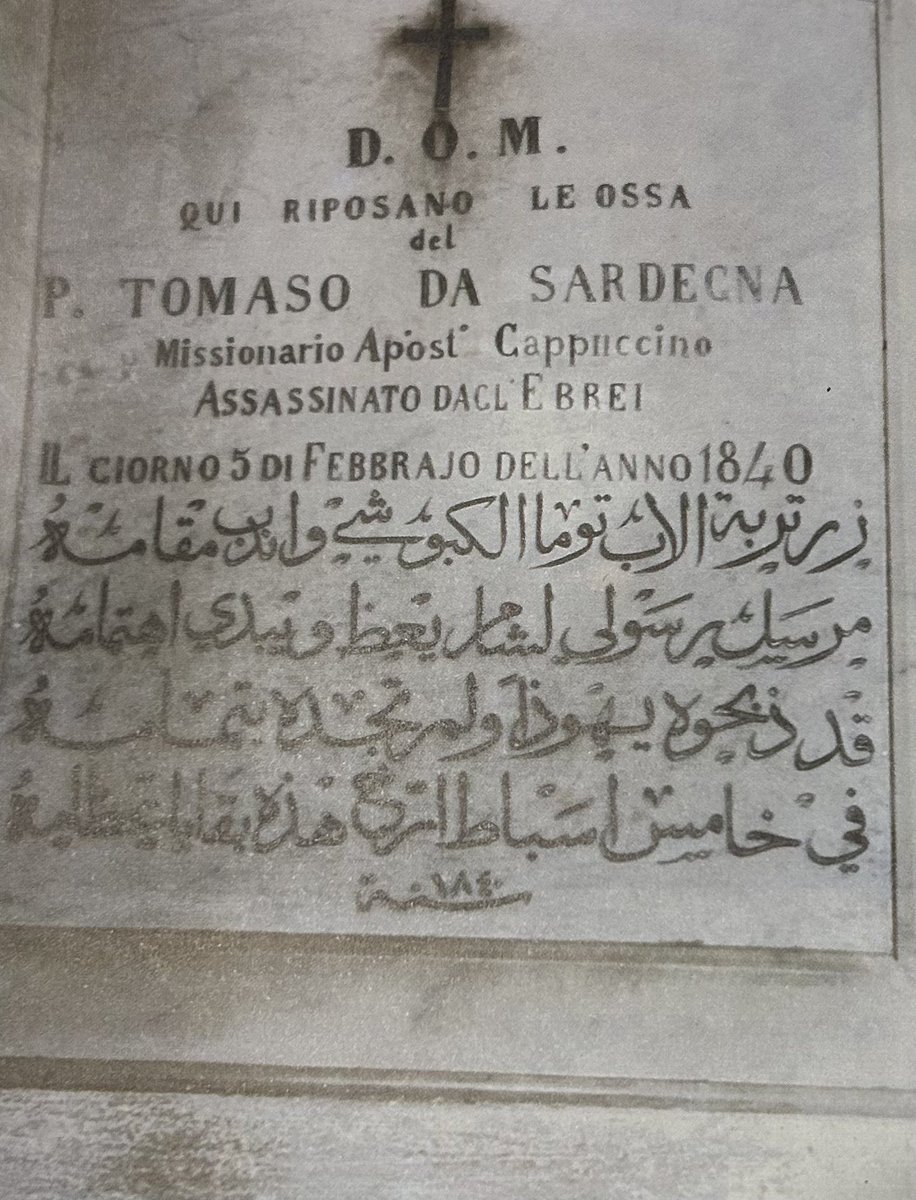 D. O. M.
QUI RIPOSANO LE OSSA
del
P. TOMASO DA SARDEGNA
Missionario Apost° Cappuccino
ASSASSINATO DAGL'EBREI
IL GIORNO 5 DI FEBBRAJO DELL'ANNO 1840
زر تربة الاب توما الكبوشي واندب مقامه
مرسيل رسولي لشام يعظ ويبدي اهتمامه
قد ذبحوه يهوذا ولم تجده بتمامه
في خامس اسباط ارخ هذه بقايا عظامه
سنة ١٨٤٠